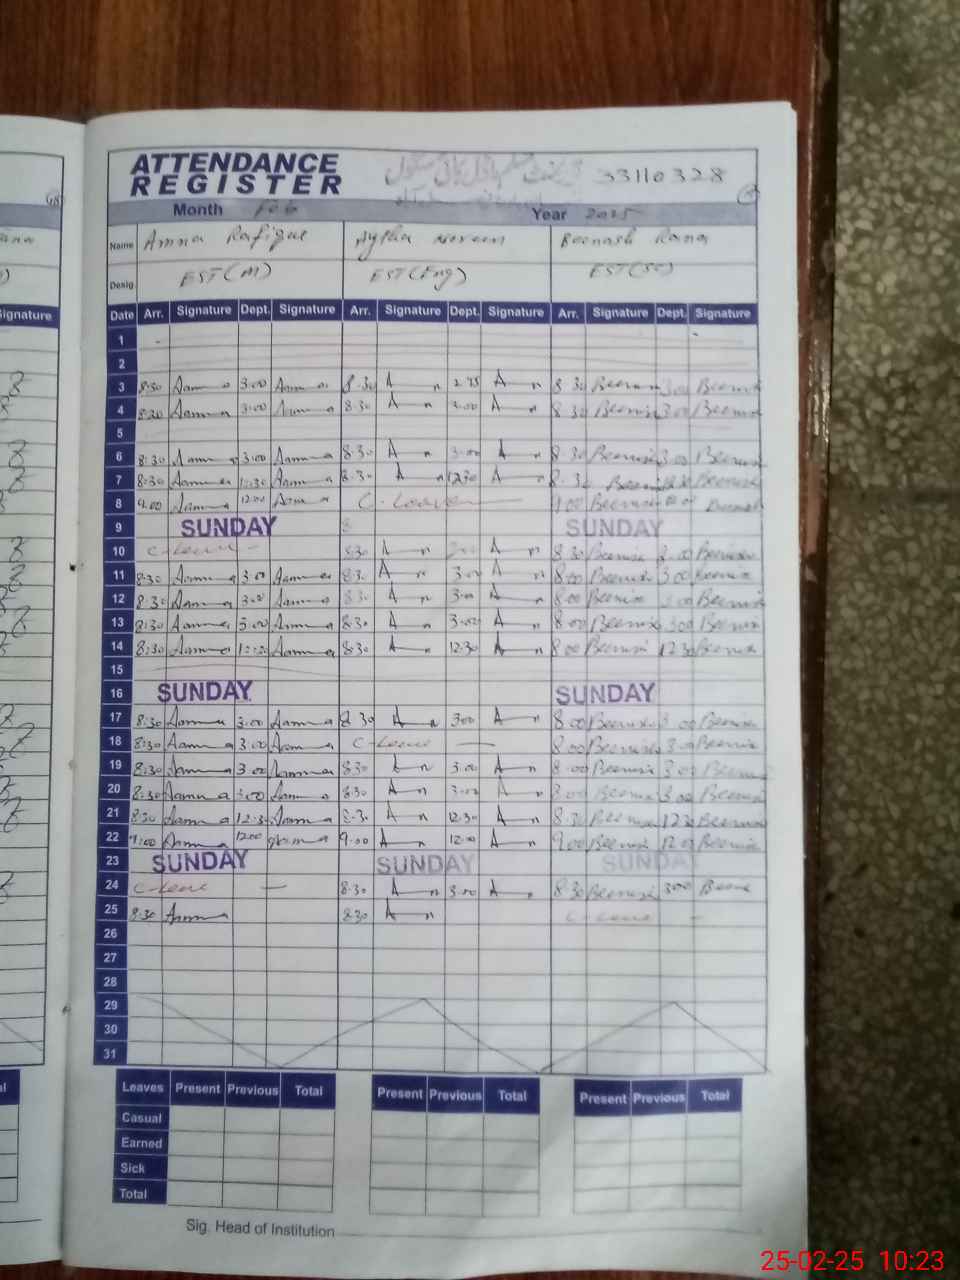 ATTENDANCE
REGISTER 33110328
Month Feb Year 2025
Name Amna Rafique Aysha Noreen Beenash Rana
Desig. EST(M) EST(Eng) EST(Sc)
Date Arr. Signature Dept. Signature Arr. Signature Dept. Signature Arr. Signature Dept. Signature
1
2
3 8:30 Aamna 3:00 Aamna 8:30 A n 2:45 A n 8:30 Beenish 3:00 Beenish
4 8:30 Aamna 3:00 Aamna 8:30 A n 3:00 A n 8:30 Beenish 3:00 Beenish
5
6 8:30 Aamna 3:00 Aamna 8:30 A n 3:00 A n 8:30 Beenish 3:00 Beenish
7 8:30 Aamna 12:30 Aamna 8:30 A n 12:30 A n 8:30 Beenish Beenish
8 9:00 Aamna 12:00 Aamna C-Leave 9:00 Beenish Beenish
9 SUNDAY SUNDAY
10 C-Leave 8:30 A n A n 8:30 Beenish 3:00 Beenish
11 8:30 Aamna 3:00 Aamna 8:30 A n 3:00 A n 8:00 Beenish 3:00 Beenish
12 8:30 Aamna 3:00 Aamna 8:30 A n 3:00 A n 8:00 Beenish 3:00 Beenish
13 8:30 Aamna 3:00 Aamna 8:30 A n 3:00 A n 8:00 Beenish 3:00 Beenish
14 8:30 Aamna 12:30 Aamna 8:30 A n 12:30 A n 8:00 Beenish 12:30 Beenish
15
16 SUNDAY SUNDAY
17 8:30 Aamna 3:00 Aamna 8:30 A n 3:00 A n 8:00 Beenish 3:00 Beenish
18 8:30 Aamna 3:00 Aamna C-Leave 8:00 Beenish 3:00 Beenish
19 8:30 Aamna 3:00 Aamna 8:30 A n 3:00 A n 8:00 Beenish 3:00 Beenish
20 8:30 Aamna 3:00 Aamna 8:30 A n 3:00 A n 8:00 Beenish 3:00 Beenish
21 8:30 Aamna 12:30 Aamna 8:30 A n 12:30 A n 8:30 Beenish 12:30 Beenish
22 9:00 Aamna 12:00 Aamna 9:00 A n 12:00 A n 9:00 Beenish 12:00 Beenish
23 SUNDAY SUNDAY SUNDAY
24 C-Leave 8:30 A n 3:00 A n 8:30 Beenish 3:00 Beenish
25 8:30 Aamna 8:30 A n C-Leave
26
27
28
29
30
31
Leaves Present Previous Total Present Previous Total Present Previous Total
Casual
Earned
Sick
Total
Sig. Head of Institution
25-02-25 10:23